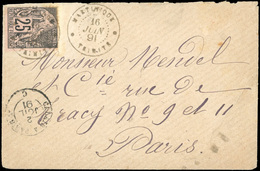 25
MARTINIQUE
16
JUIN
91
TRINITE
Monsieur Mendel
& Cie rue de
Tracy No 9 et 11
Paris.
2
JUIL
91